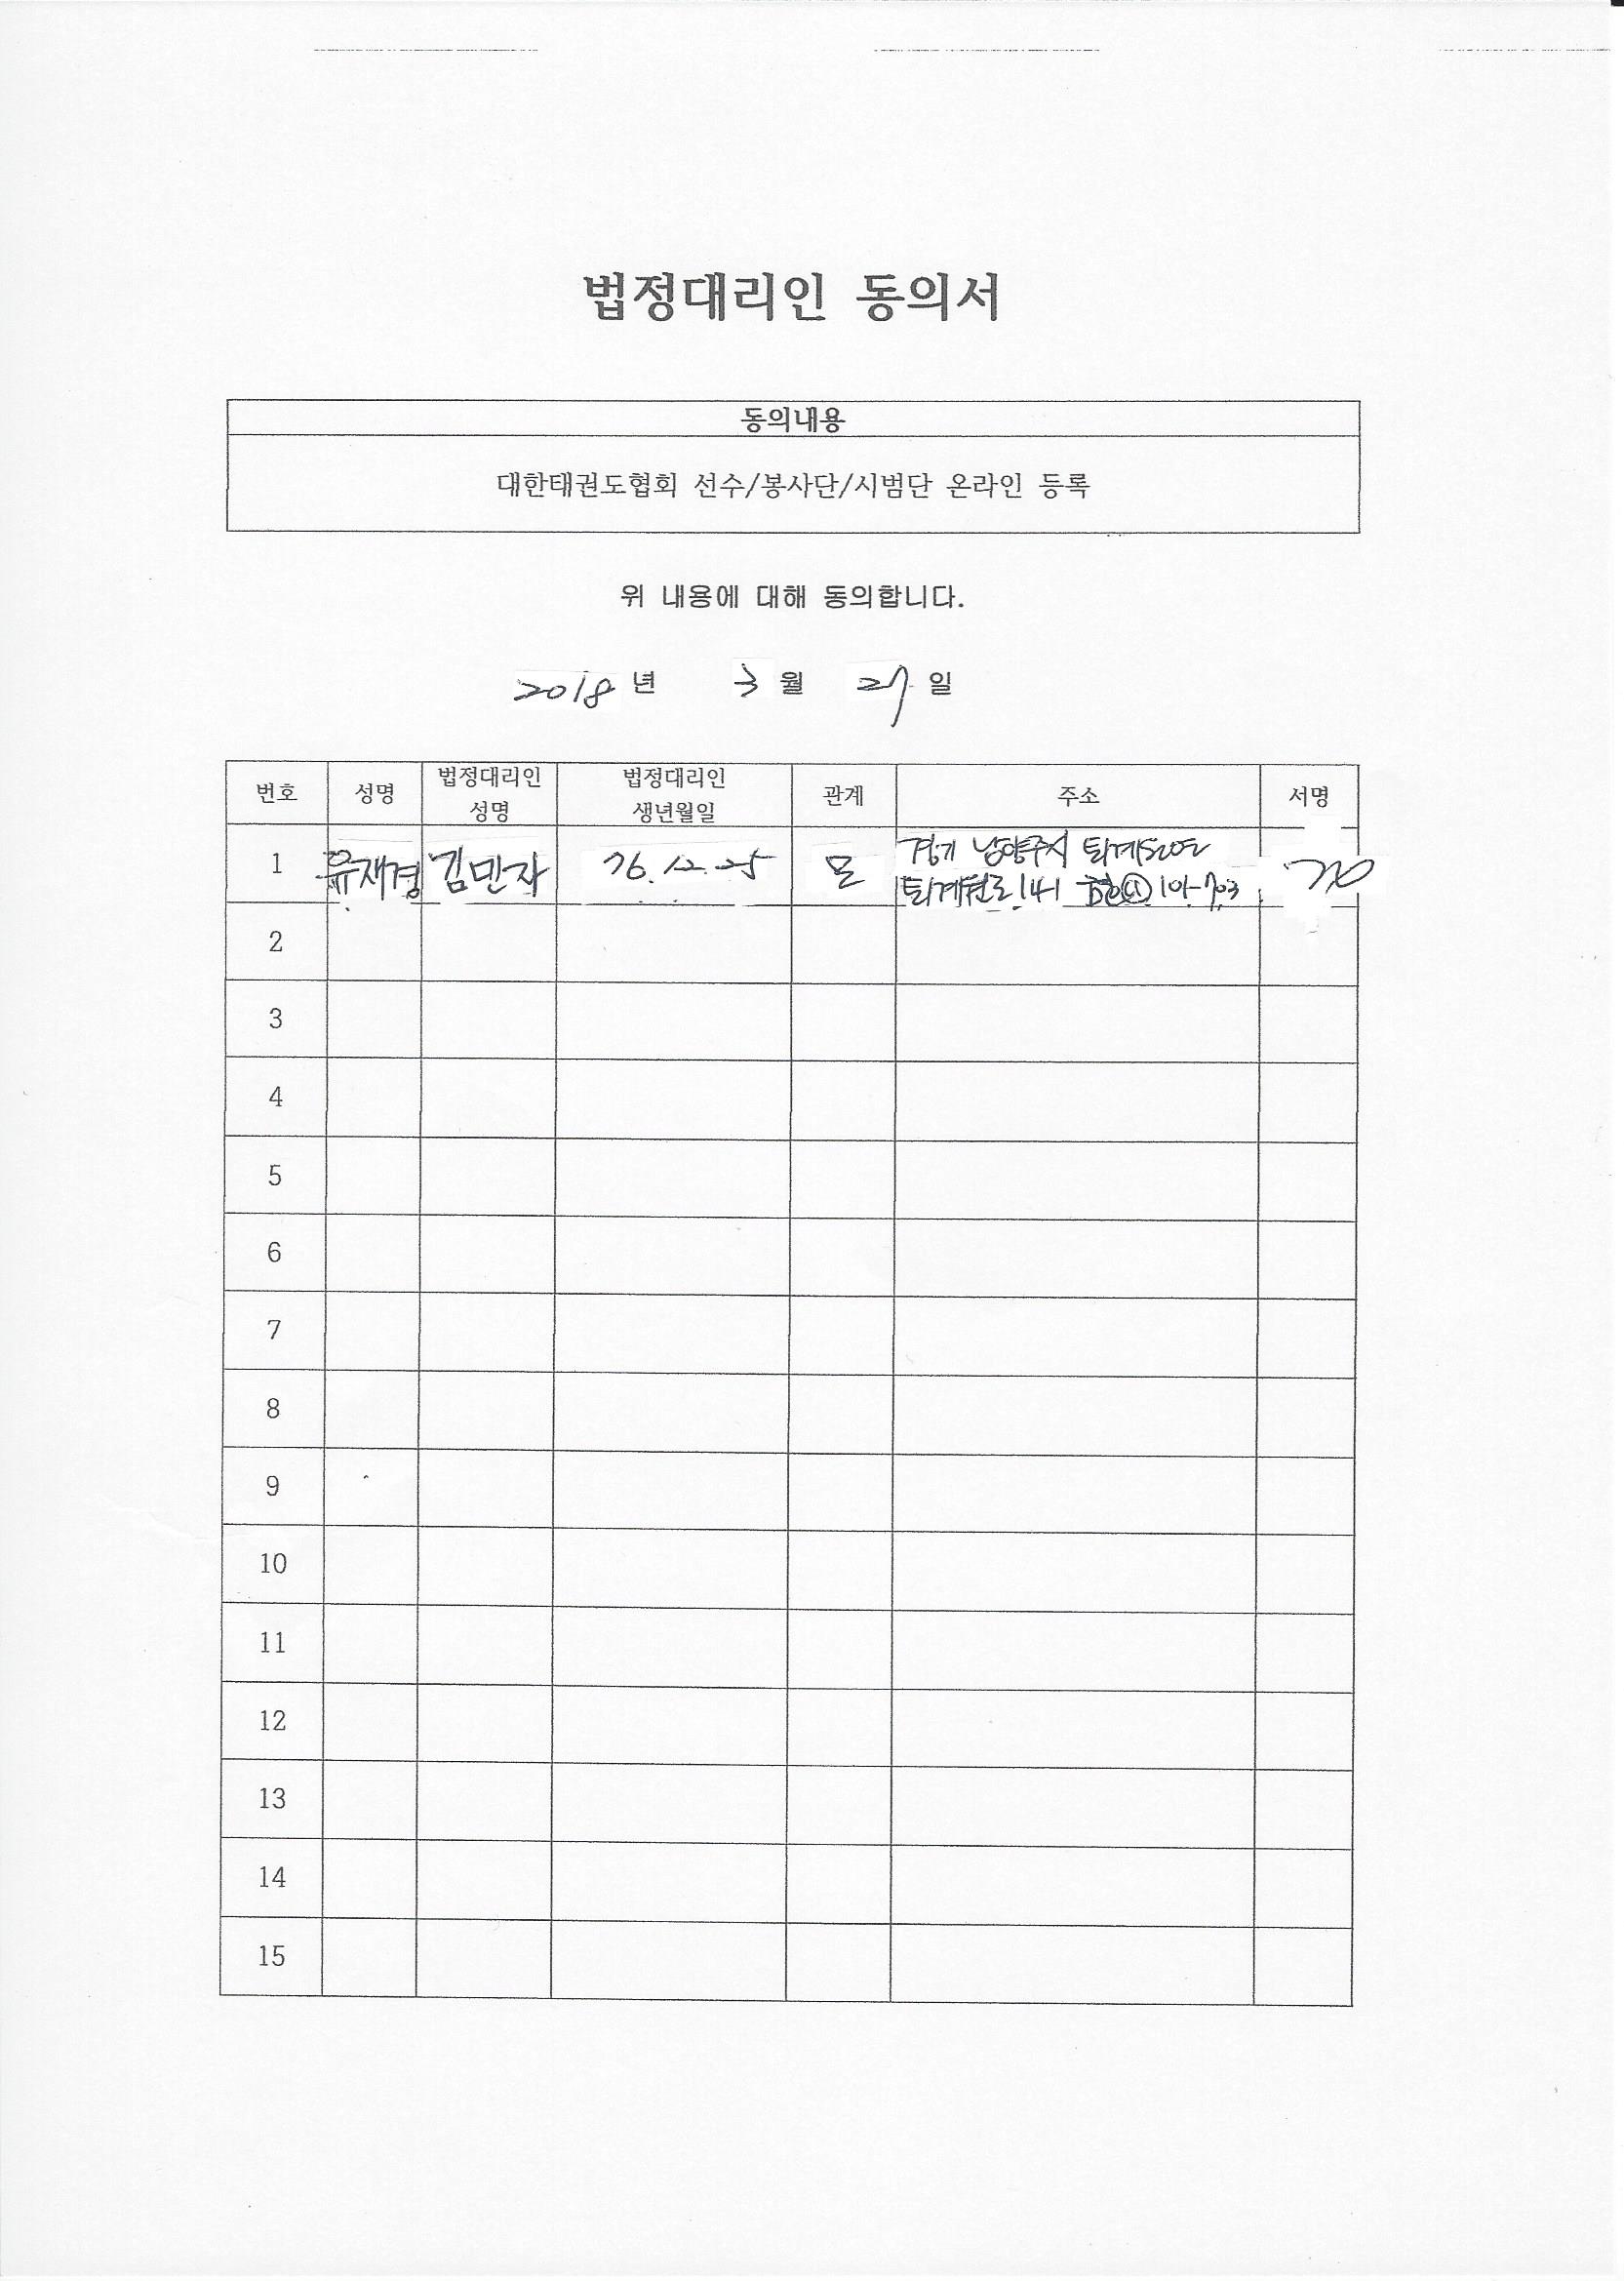 법정대리인 동의서
동의내용
대한태권도협회 선수/봉사단/시범단 온라인 등록
위 내용에 대해 동의합니다.
2018 년 3 월 27 일
번호 성명 법정대리인 성명 법정대리인 생년월일 관계 주소 서명
1 유재경 김민자 76.12.25 모 경기 남양주시 퇴계원면
퇴계원로 141 101-703
2
3
4
5
6
7
8
9
10
11
12
13
14
15